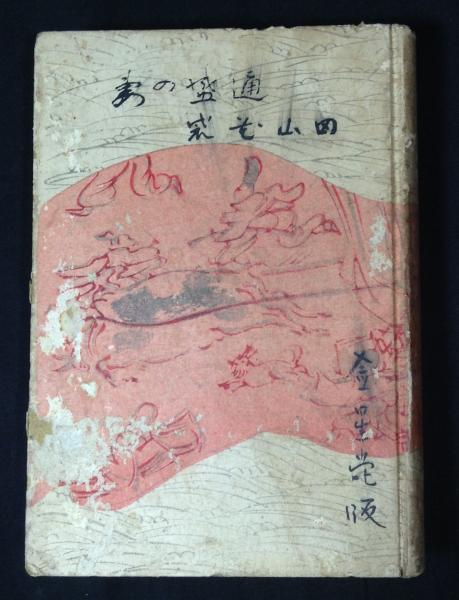 通盛の妻
田山花袋
金星堂版